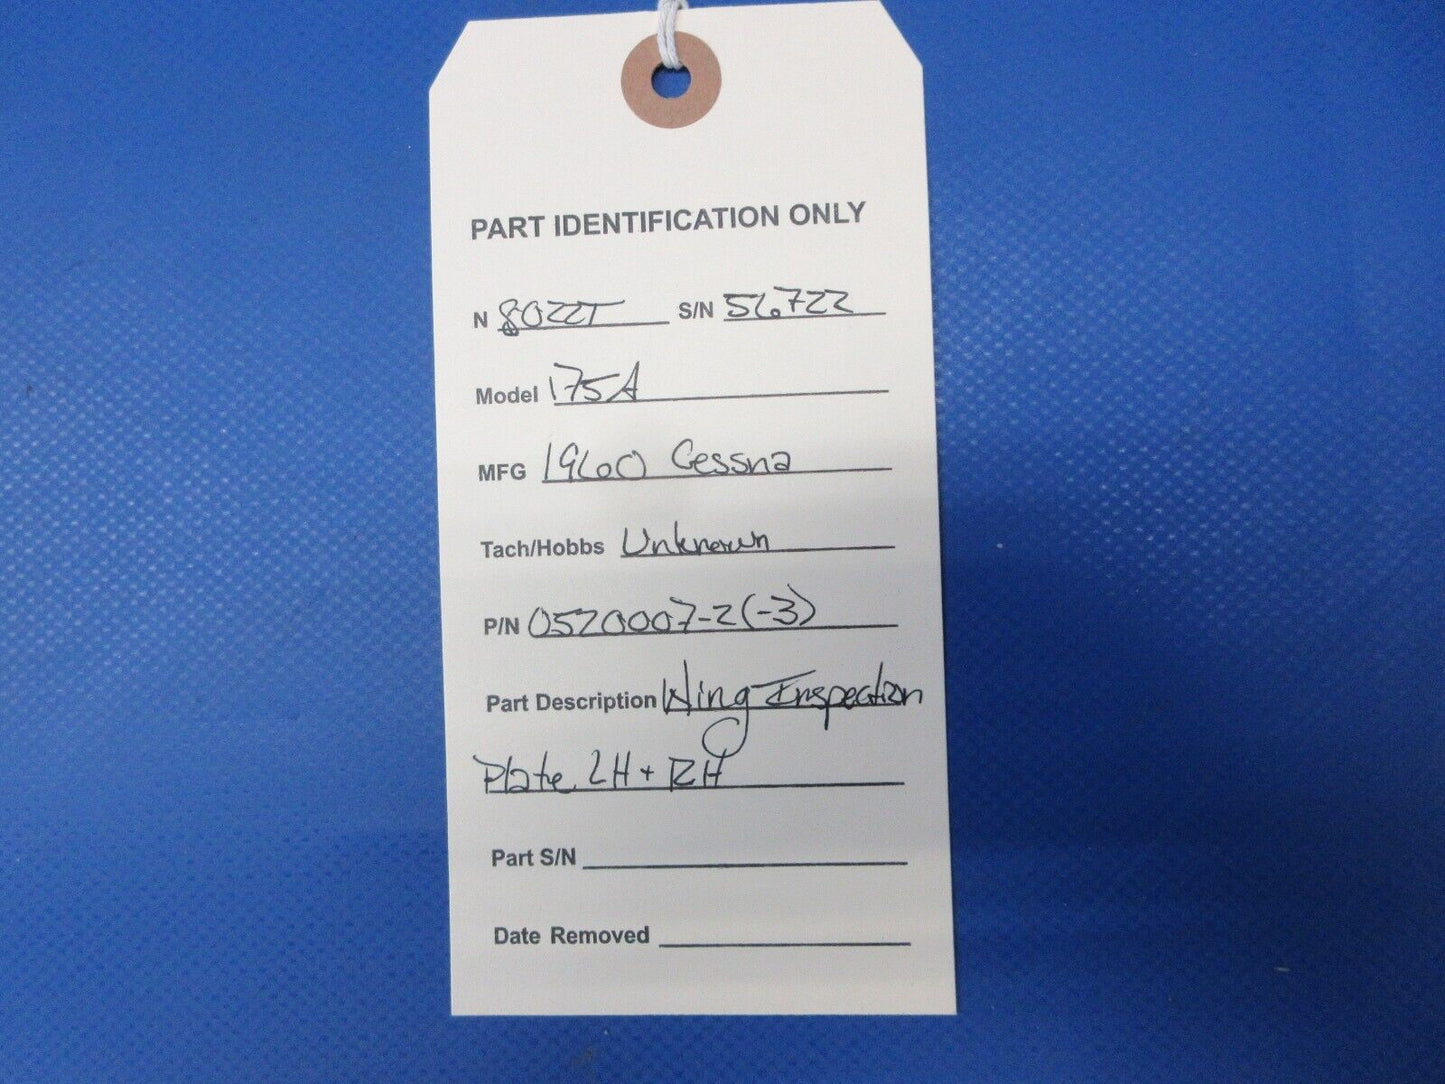 PART IDENTIFICATION ONLY
N 8022T S/N 56722
Model 175A
MFG 1960 Cessna
Tach/Hobbs Unknown
P/N 0520007-2(-3)
Part Description Wing Inspection
Plate LH + RH
Part S/N
Date Removed